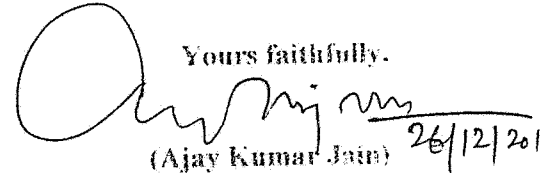 Yours faithfully.
26/12/201
(Ajay Kumar Jain)